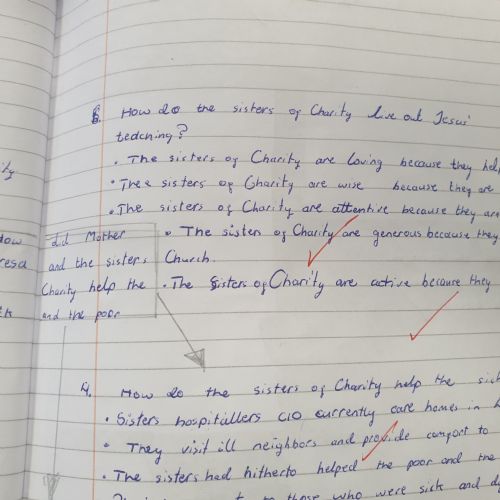 6. How do the sisters of Charity live out Jesus'
teaching?
• The sisters of Charity are loving because they hel
• The sisters of Charity are wise because they are
• The sisters of Charity are attentive because they are
• The sisters of Charity are generous because they
Church.
• The Sisters of Charity are active because they
did Mother
and the sisters
Charity help the
and the poor
4. How do the sisters of Charity help the sick
• Sisters hospitallers currently care homes in
• They visit ill neighbors and provide comfort to
• The sisters had hitherto helped the poor and the
to those who were sick and